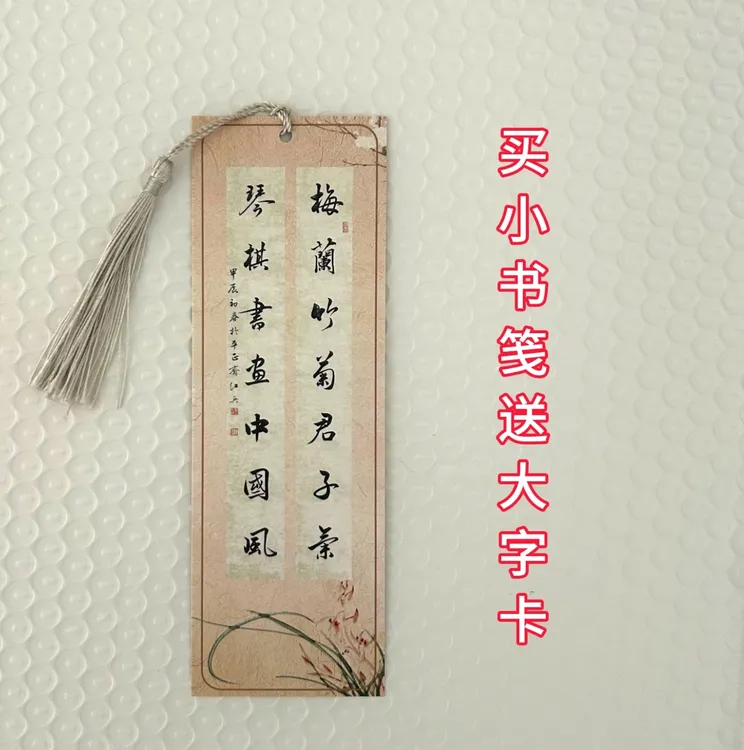 梅蘭竹菊君子氣
琴棋書画中國風
甲辰初春於平正齋江兵
买小书笺送大字卡